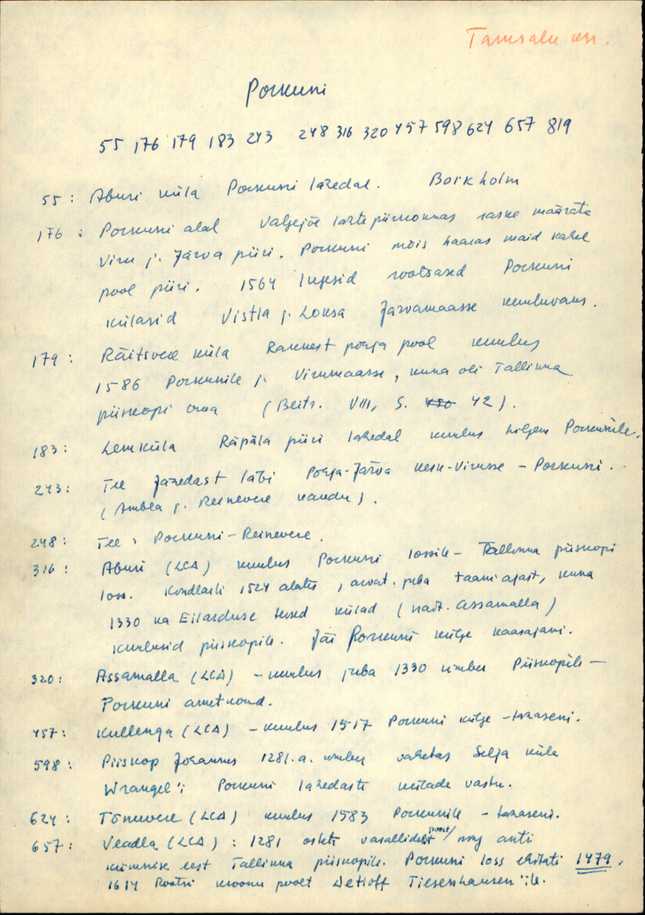 Tamsalu
Porkuni
55 176 179 183 243 248 316 320 457 598 624 657 819
55: Aburi küla Porkuni lähedal. Borkholm
176: Porkuni alal Valgejõe lätte piirkonnas raske määrata
Viru j. Järva piiri. Porkuni mõis haaras maid kahel
pool piiri. 1564 lugesid rootslased Porkuni
külasid Vistla j. Loksa Järvamaasse kuuluvaks.
179: Räitsvere küla Rakkest põhja pool kuulus
1586 Porkunile j. Virumaasse, kuna oli Tallinna
piiskopi oma (Beitr. VIII, S. 42).
183: Lemküla Räpäla piiri lähedal kuulus hiljem Porkunile.
243: Tee Järedast läbi Põhja-Järva Kesk-Virusse – Porkuni.
(Ambla j. Reinevere kaudu).
248: Tee: Porkuni–Reinevere.
316: Aburi (LCA) kuulus Porkuni lossile – Tallinna piiskopi
loss. Kindlasti 1524 alates, arvat. juba taani ajast, kuna
1330 ka Eilarduse teised külad (näit. Assamalla)
kuulusid piiskopile. Jäi Porkuni külge kaasajani.
320: Assamalla (LCA) – kuulus juba 1330 ümber Piiskopile –
Porkuni ametkond.
457: Kullenga (LCA) – kuulus 1517 Porkuni külge
598: Piiskop Johannes 1281.a. ümber vahetas Selja küla
Wrangel'i Porkuni lähedaste külade vastu.
624: Tõnuvere (LCA) kuulus 1583 Porkunile
657: Veadla (LCA): 1281 osteti vasallidelt ning anti
kümnise eest Tallinna piiskopile. Porkuni loss ehitati 1479.
1614 Rootsi krooni poolt Detloff Tiesenhausen'ile.